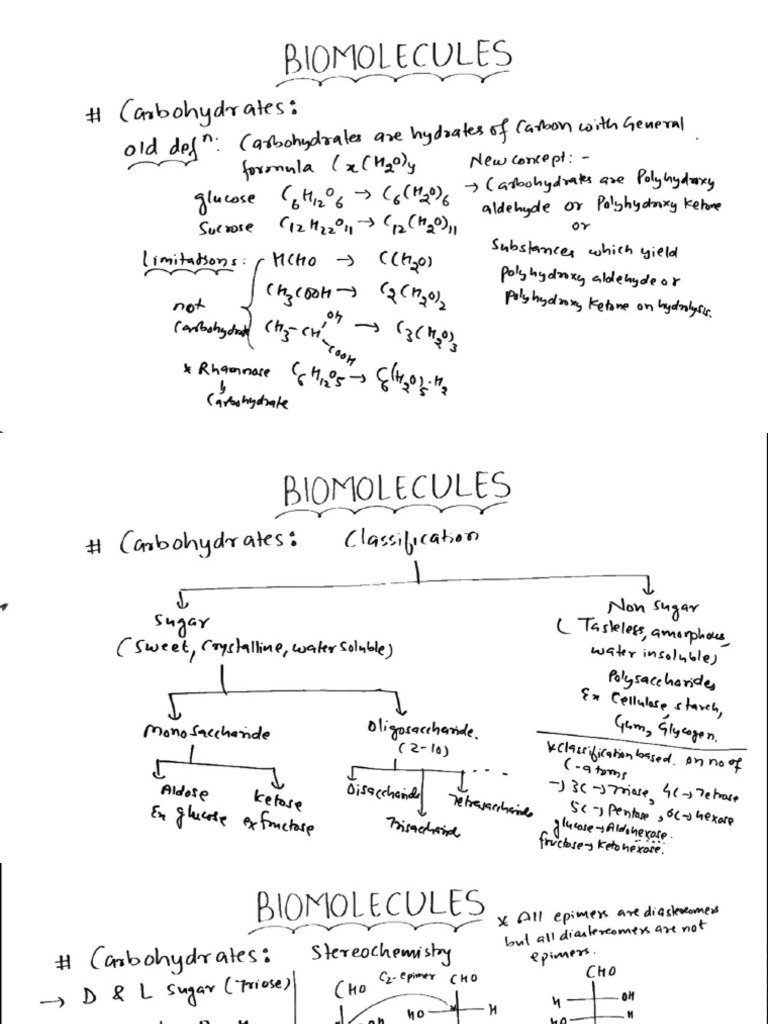 BIOMOLECULES
# Carbohydrates:
old defⁿ: Carbohydrates are hydrates of Carbon with General
formula Cx(H₂O)y
glucose C₆H₁₂O₆ → C₆(H₂O)₆
Sucrose C₁₂H₂₂O₁₁ → C₁₂(H₂O)₁₁
New concept: -
→ Carbohydrates are Polyhydroxy
aldehyde or Polyhydroxy Ketone
or
Substances which yield
polyhydroxy aldehyde or
polyhydroxy Ketone on hydrolysis.
Limitations: HCHO → C(H₂O)
CH₃COOH → C₂(H₂O)₂
not
Carbohydrate
CH₃-CH OH COOH → C₃(H₂O)₃
* Rhamnose C₆H₁₂O₅ → C₆(H₂O)₅·H₂
↳ Carbohydrate
BIOMOLECULES
# Carbohydrates: Classification
Sugar
(Sweet, Crystalline, water soluble)
Non sugar
(Tasteless, amorphous,
water insoluble)
Polysaccharides
Ex Cellulose, starch,
Gum, Glycogen.
Monosaccharide
Oligosaccharide.
(2-10)
Aldose
Ex glucose
Ketose
ex fructose
Disaccharide
Trisaccharid
Tetrasaccharide
....
* Classification based. on no of
C-atoms
→ 3C → Triose, 4C → Tetrose
5C → Pentose, 6C → hexose
glucose → Aldohexose.
fructose → Ketohexose.
BIOMOLECULES
* All epimers are diastereomers
but all diastereomers are not
epimers.
# Carbohydrates: Stereochemistry
→ D & L sugar (Triose)
CHO
C₂-epimer
CHO
HO H
CHO
H OH